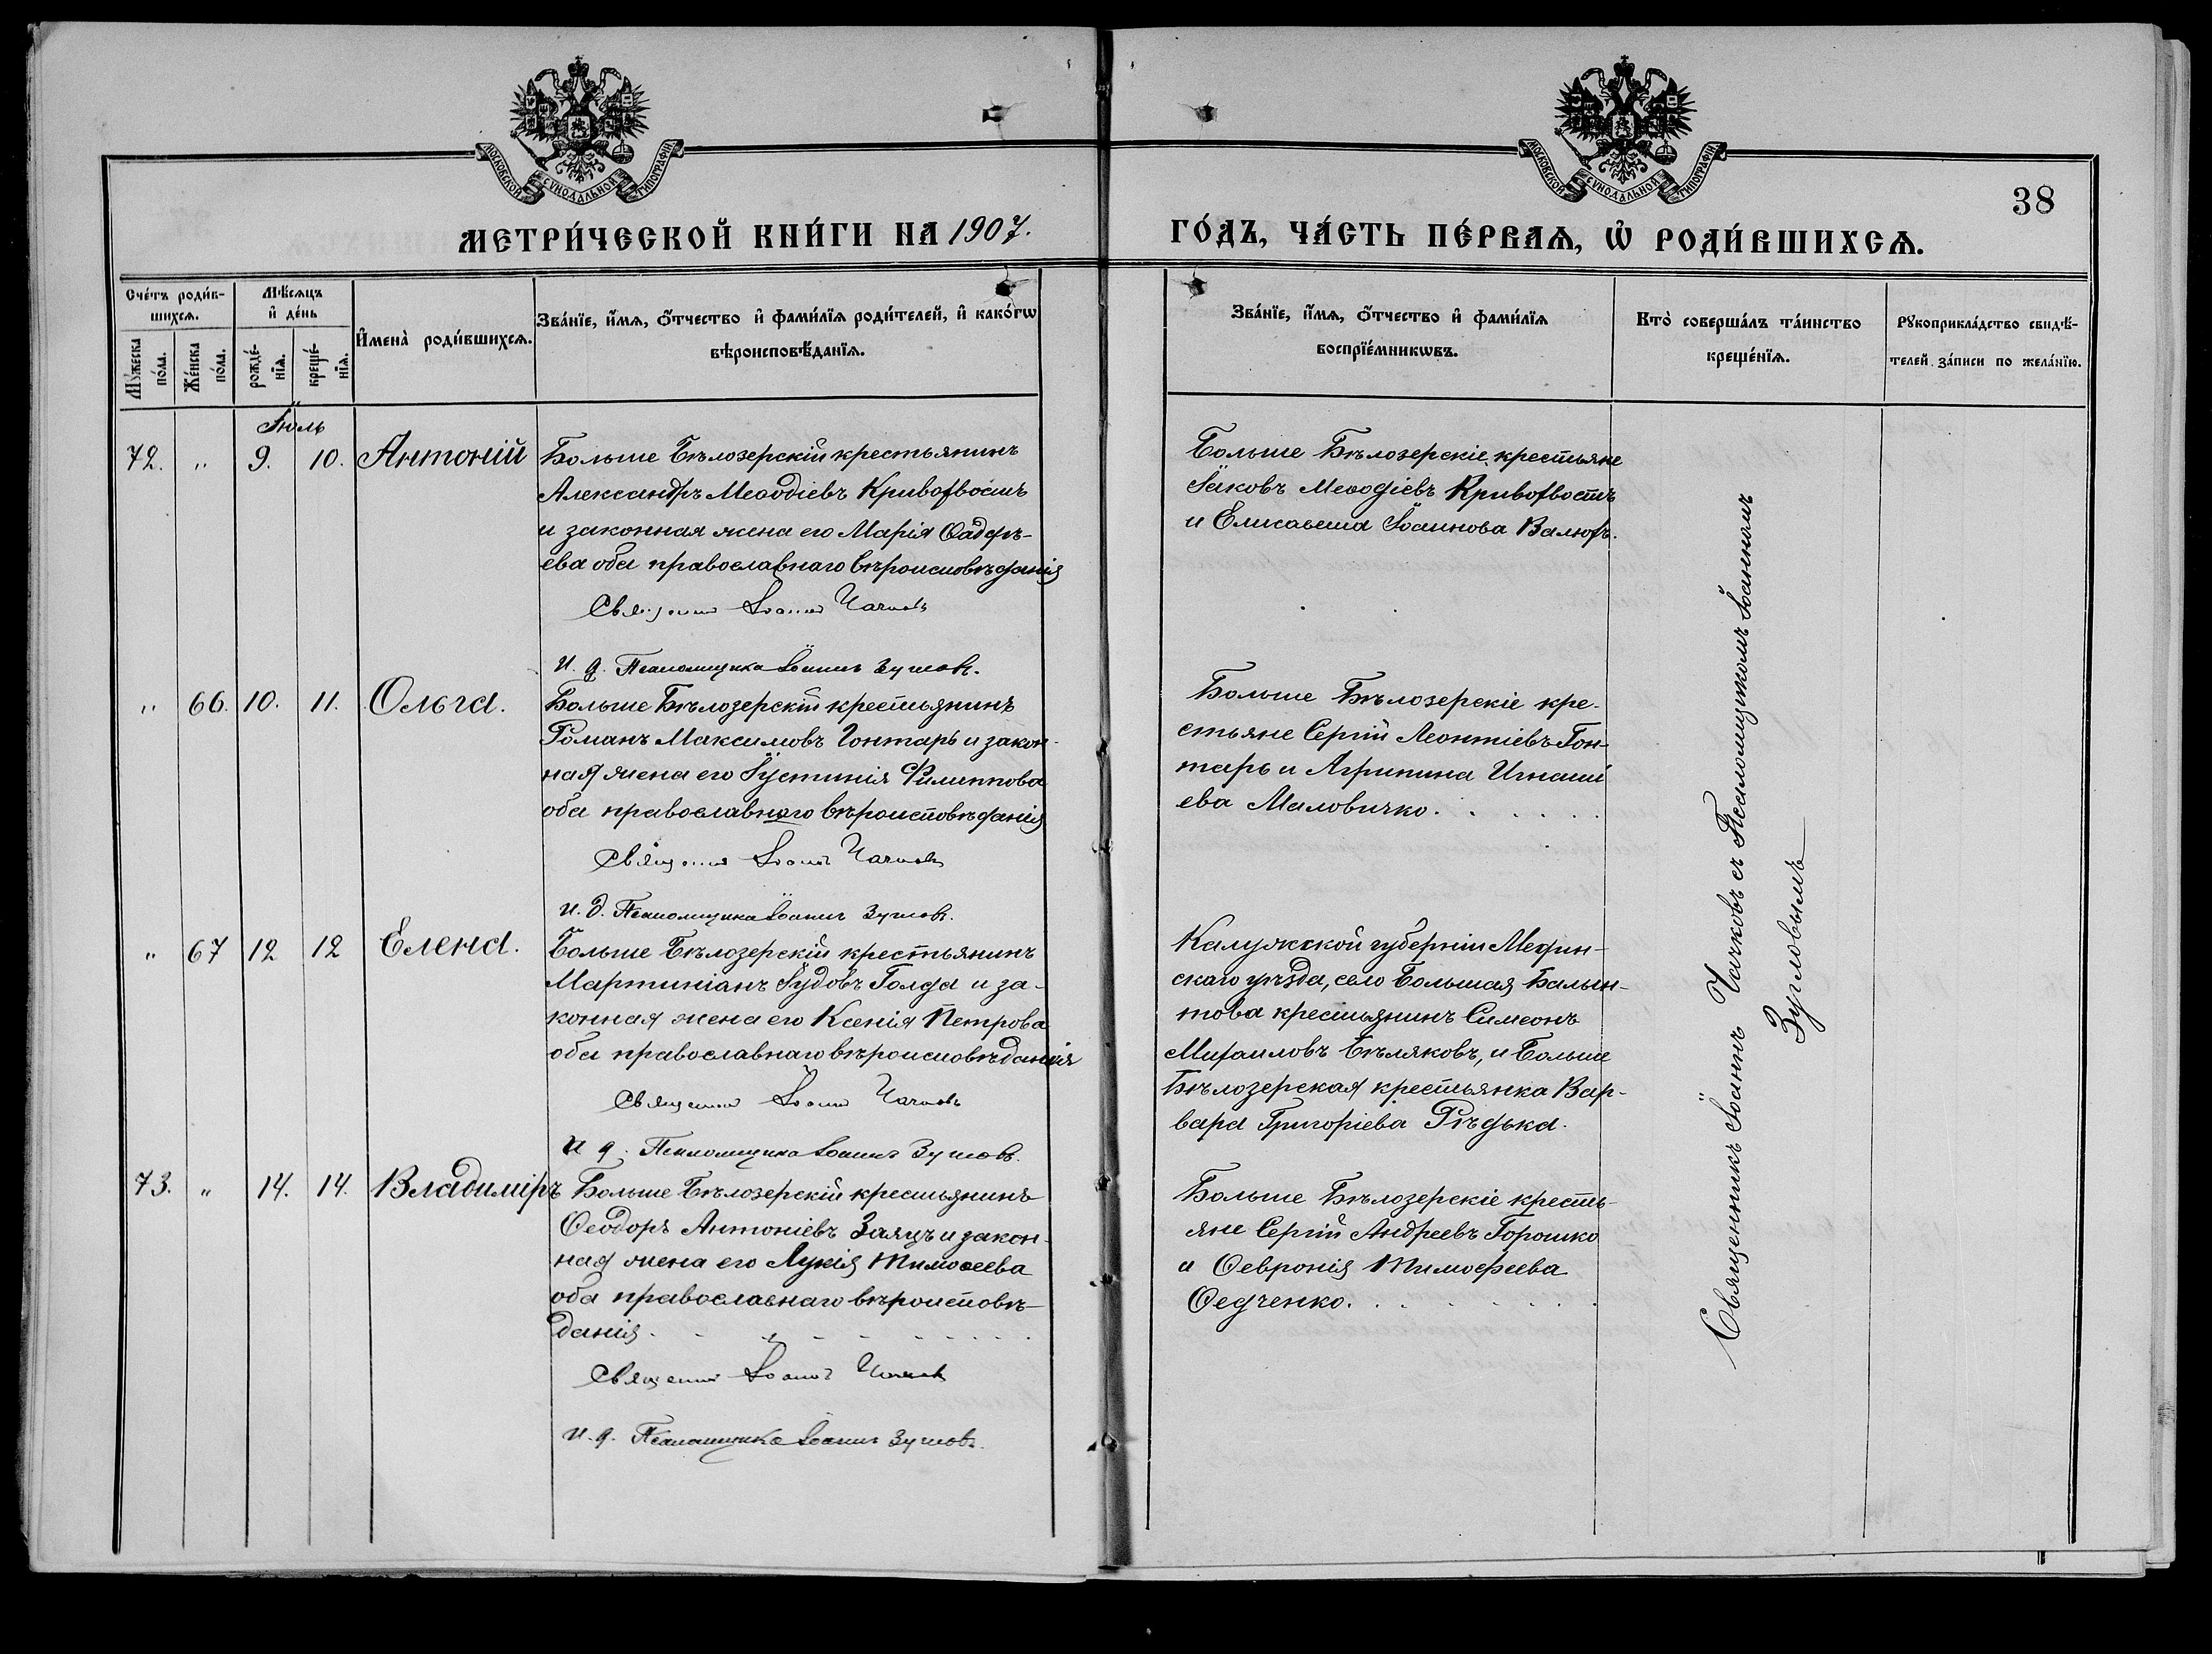 МОСКОВСКОЙ СѴНОДАЛЬНОЙ ТИПОГРАФІИ
МОСКОВСКОЙ СѴНОДАЛЬНОЙ ТИПОГРАФІИ
38
МЕТРИ́ЧЕСКОЙ КНИ́ГИ НА 1907.
ГО́ДЪ, ЧА́СТЬ ПЕ́РВАѦ, Ѽ РОДИ́ВШИХСѦ.
Сче́тъ роди́в-
шихсѧ.
Мꙋ́жеска по́ла.
Же́нска по́ла.
Мѣ́сѧцъ
и҆ де́нь
рожде́-нїѧ.
креще́-нїѧ.
И҆мена̀ роди́вшихсѧ.
Зва́нїе, и҆́мѧ, ѻ҆́тчество и҆ фами́лїѧ роди́телей, и҆ како́гѡ
вѣроисповѣ́данїѧ.
Зва́нїе, и҆́мѧ, ѻ҆́тчество и҆ фами́лїѧ
воспрїе́мникѡвъ.
Кто̀ соверша́лъ та́инство
креще́нїѧ.
Рꙋкоприкла́дство свидѣ́-
телей за́писи по жела́нїю.
Іюль
72. " 9. 10. Антоній
Больше Бѣлозерскій крестьянинъ
Александръ Меѳодіевъ Кривохвостъ
и законная жена его Марія Ѳадѣ-
ева оба православнаго вѣроисповѣданія
Священникъ Іоаннъ Чачковъ
И. д. Псаломщика Іоаннъ Зугловъ.
Больше Бѣлозерскіе крестьяне
Іаковъ Меѳодіевъ Кривохвостъ
и Елисавета Іоаннова Валюхъ.
" 66. 10. 11. Ольга.
Больше Бѣлозерскій крестьянинъ
Романъ Максимовъ Гонтарь и закон-
ная жена его Іустинія Филиппова
оба православнаго вѣроисповѣданія
Священникъ Іоаннъ Чачковъ
И. д. Псаломщика Іоаннъ Зугловъ.
Больше Бѣлозерскіе кре-
стьяне Сергій Леонтіевъ Гон-
тарь и Агрипина Игнаті
ева Маловичко.
" 67 12 12 Елена.
Больше Бѣлозерскій крестьянинъ
Мартиніанъ Іудовъ Голда и за-
конная жена его Ксенія Петрова
оба православнаго вѣроисповѣданія
Священникъ Іоаннъ Чачковъ
И д. Псаломщика Іоаннъ Зугловъ.
Калужской губерніи Медин-
скаго уѣзда, село Большая
крестьянинъ Симеонъ
Михаиловъ Бѣляковъ, и Больше
Бѣлозерская крестьянка Вар-
вара Григоріева Рѣдька.
73. " 14. 14. Владиміръ
Больше Бѣлозерскій крестьянинъ
Ѳеодоръ Антоніевъ Заяцъ и закон-
ная жена его Лукія Тимоѳеева
оба православнаго вѣроисповѣ-
данія.
Священникъ Іоаннъ Чачковъ
И. д. Псаломщика Іоаннъ Зугловъ.
Больше Бѣлозерскіе кресть-
яне Сергій Андреевъ Горошко
и Ѳевронія Тимоѳеева
Ѳедченко.
Священникъ Іоаннъ Чачковъ съ Псаломщикомъ Іоанномъ
Зугловымъ